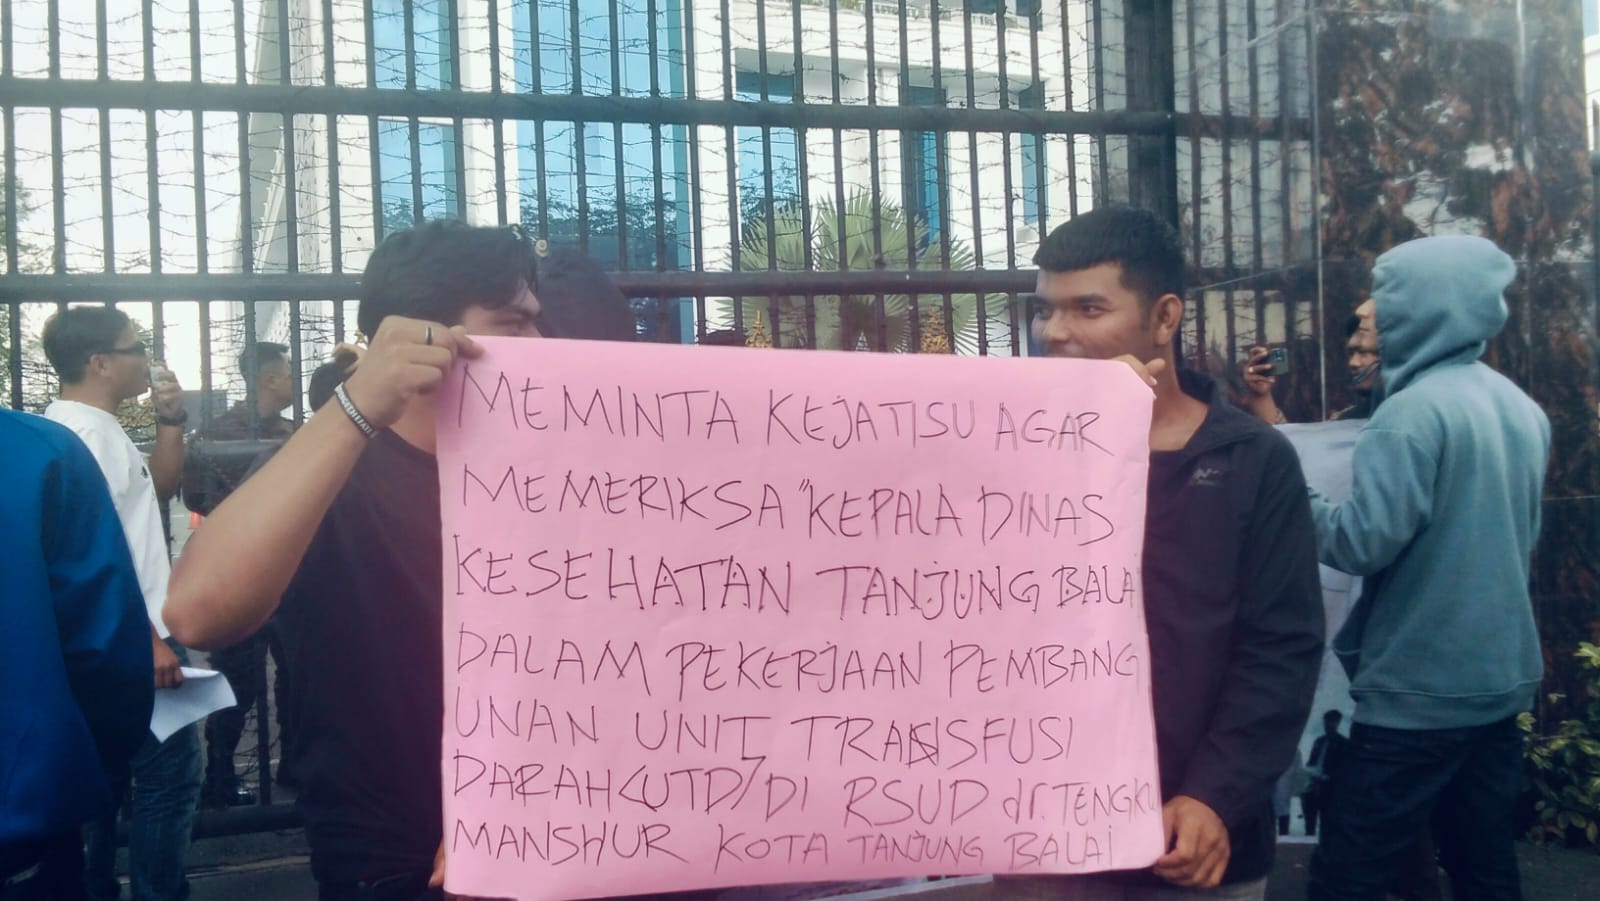 MEMINTA KEJATISU AGAR
MEMERIKSA "KEPALA DINAS
KESEHATAN TANJUNG BALAI
DALAM PEKERJAAN PEMBANG
UNAN UNIT TRANSFUSI
DARAH (UTD) DI RSUD dr. TENGKU
MANSHUR KOTA TANJUNG BALAI